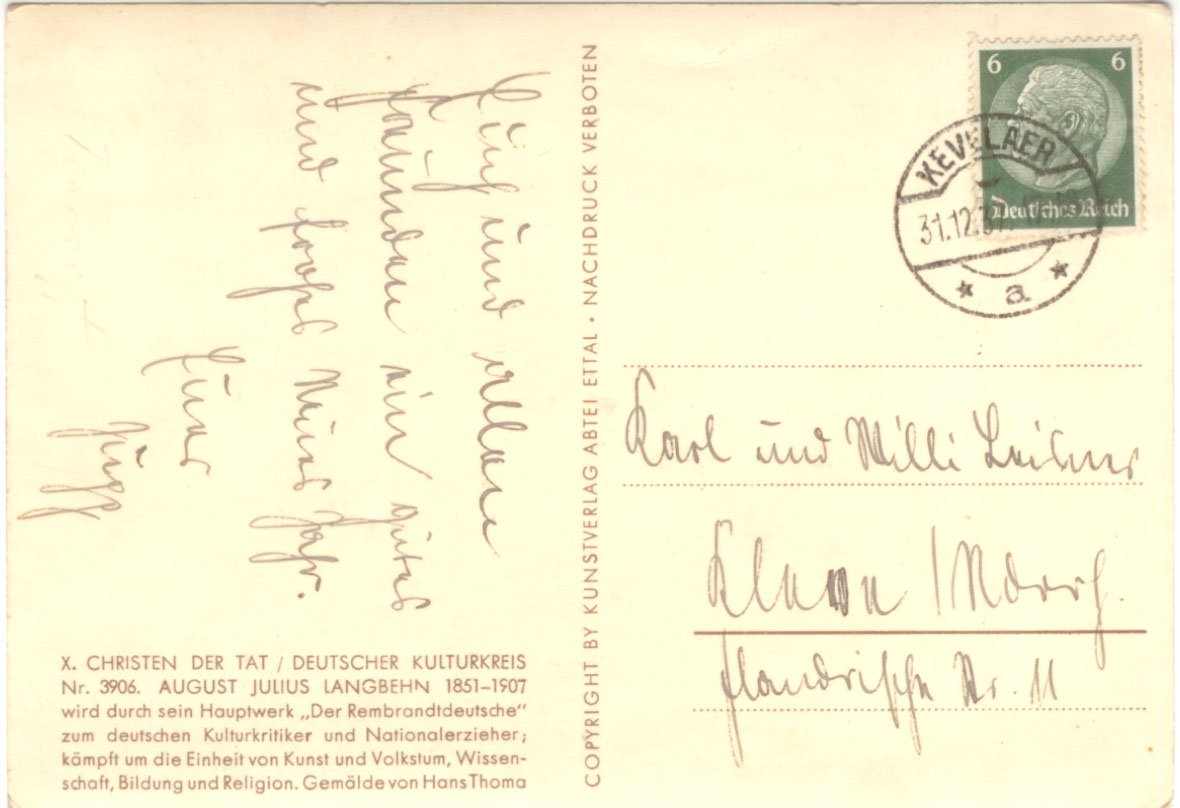 Euch und allen
Freunden ein gutes
und frohes Neues Jahr.
Euer
Jupp
X. CHRISTEN DER TAT / DEUTSCHER KULTURKREIS
Nr. 3906. AUGUST JULIUS LANGBEHN 1851–1907
wird durch sein Hauptwerk „Der Rembrandtdeutsche“
zum deutschen Kulturkritiker und Nationalerzieher;
kämpft um die Einheit von Kunst und Volkstum, Wissen-
schaft, Bildung und Religion. Gemälde von Hans Thoma
COPYRIGHT BY KUNSTVERLAG ABTEI ETTAL · NACHDRUCK VERBOTEN
6 6
Deutsches Reich
KEVELAER
31.12.
a
Karl und Willi Leisner
Kleve / Ndrrh.
Flandrische Str. 11